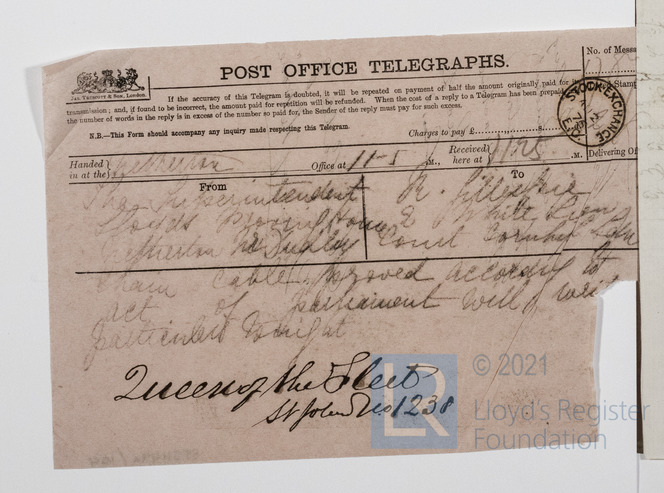 POST OFFICE TELEGRAPHS.
No. of Messa
Jas. Truscott & Son, London.
If the accuracy of this Telegram is doubted, it will be repeated on payment of half the amount originally paid for its
transmission; and, if found to be incorrect, the amount paid for repetition will be refunded. When the cost of a reply to a Telegram has been prepaid
the number of words in the reply is in excess of the number so paid for, the Sender of the reply must pay for such excess.
N.B.—This Form should accompany any inquiry made respecting this Telegram.
Charges to pay £
Stamp
STOCK-EXCHANGE
Handed in at the Netherton Office at 11-5 M., Received here at 11/25 .M. Delivering Of
From
The Superintendent
Lloyds Proving House
Netherton Nr Dudley
To
R. Gillespie
2 White Lion
Court Cornhill Ldn
Chain Cable proved according to
act of parliament will
particulars tonight
Queen of the Fleet
St John No 1238
© 2021
LR
Lloyd's Register
Foundation